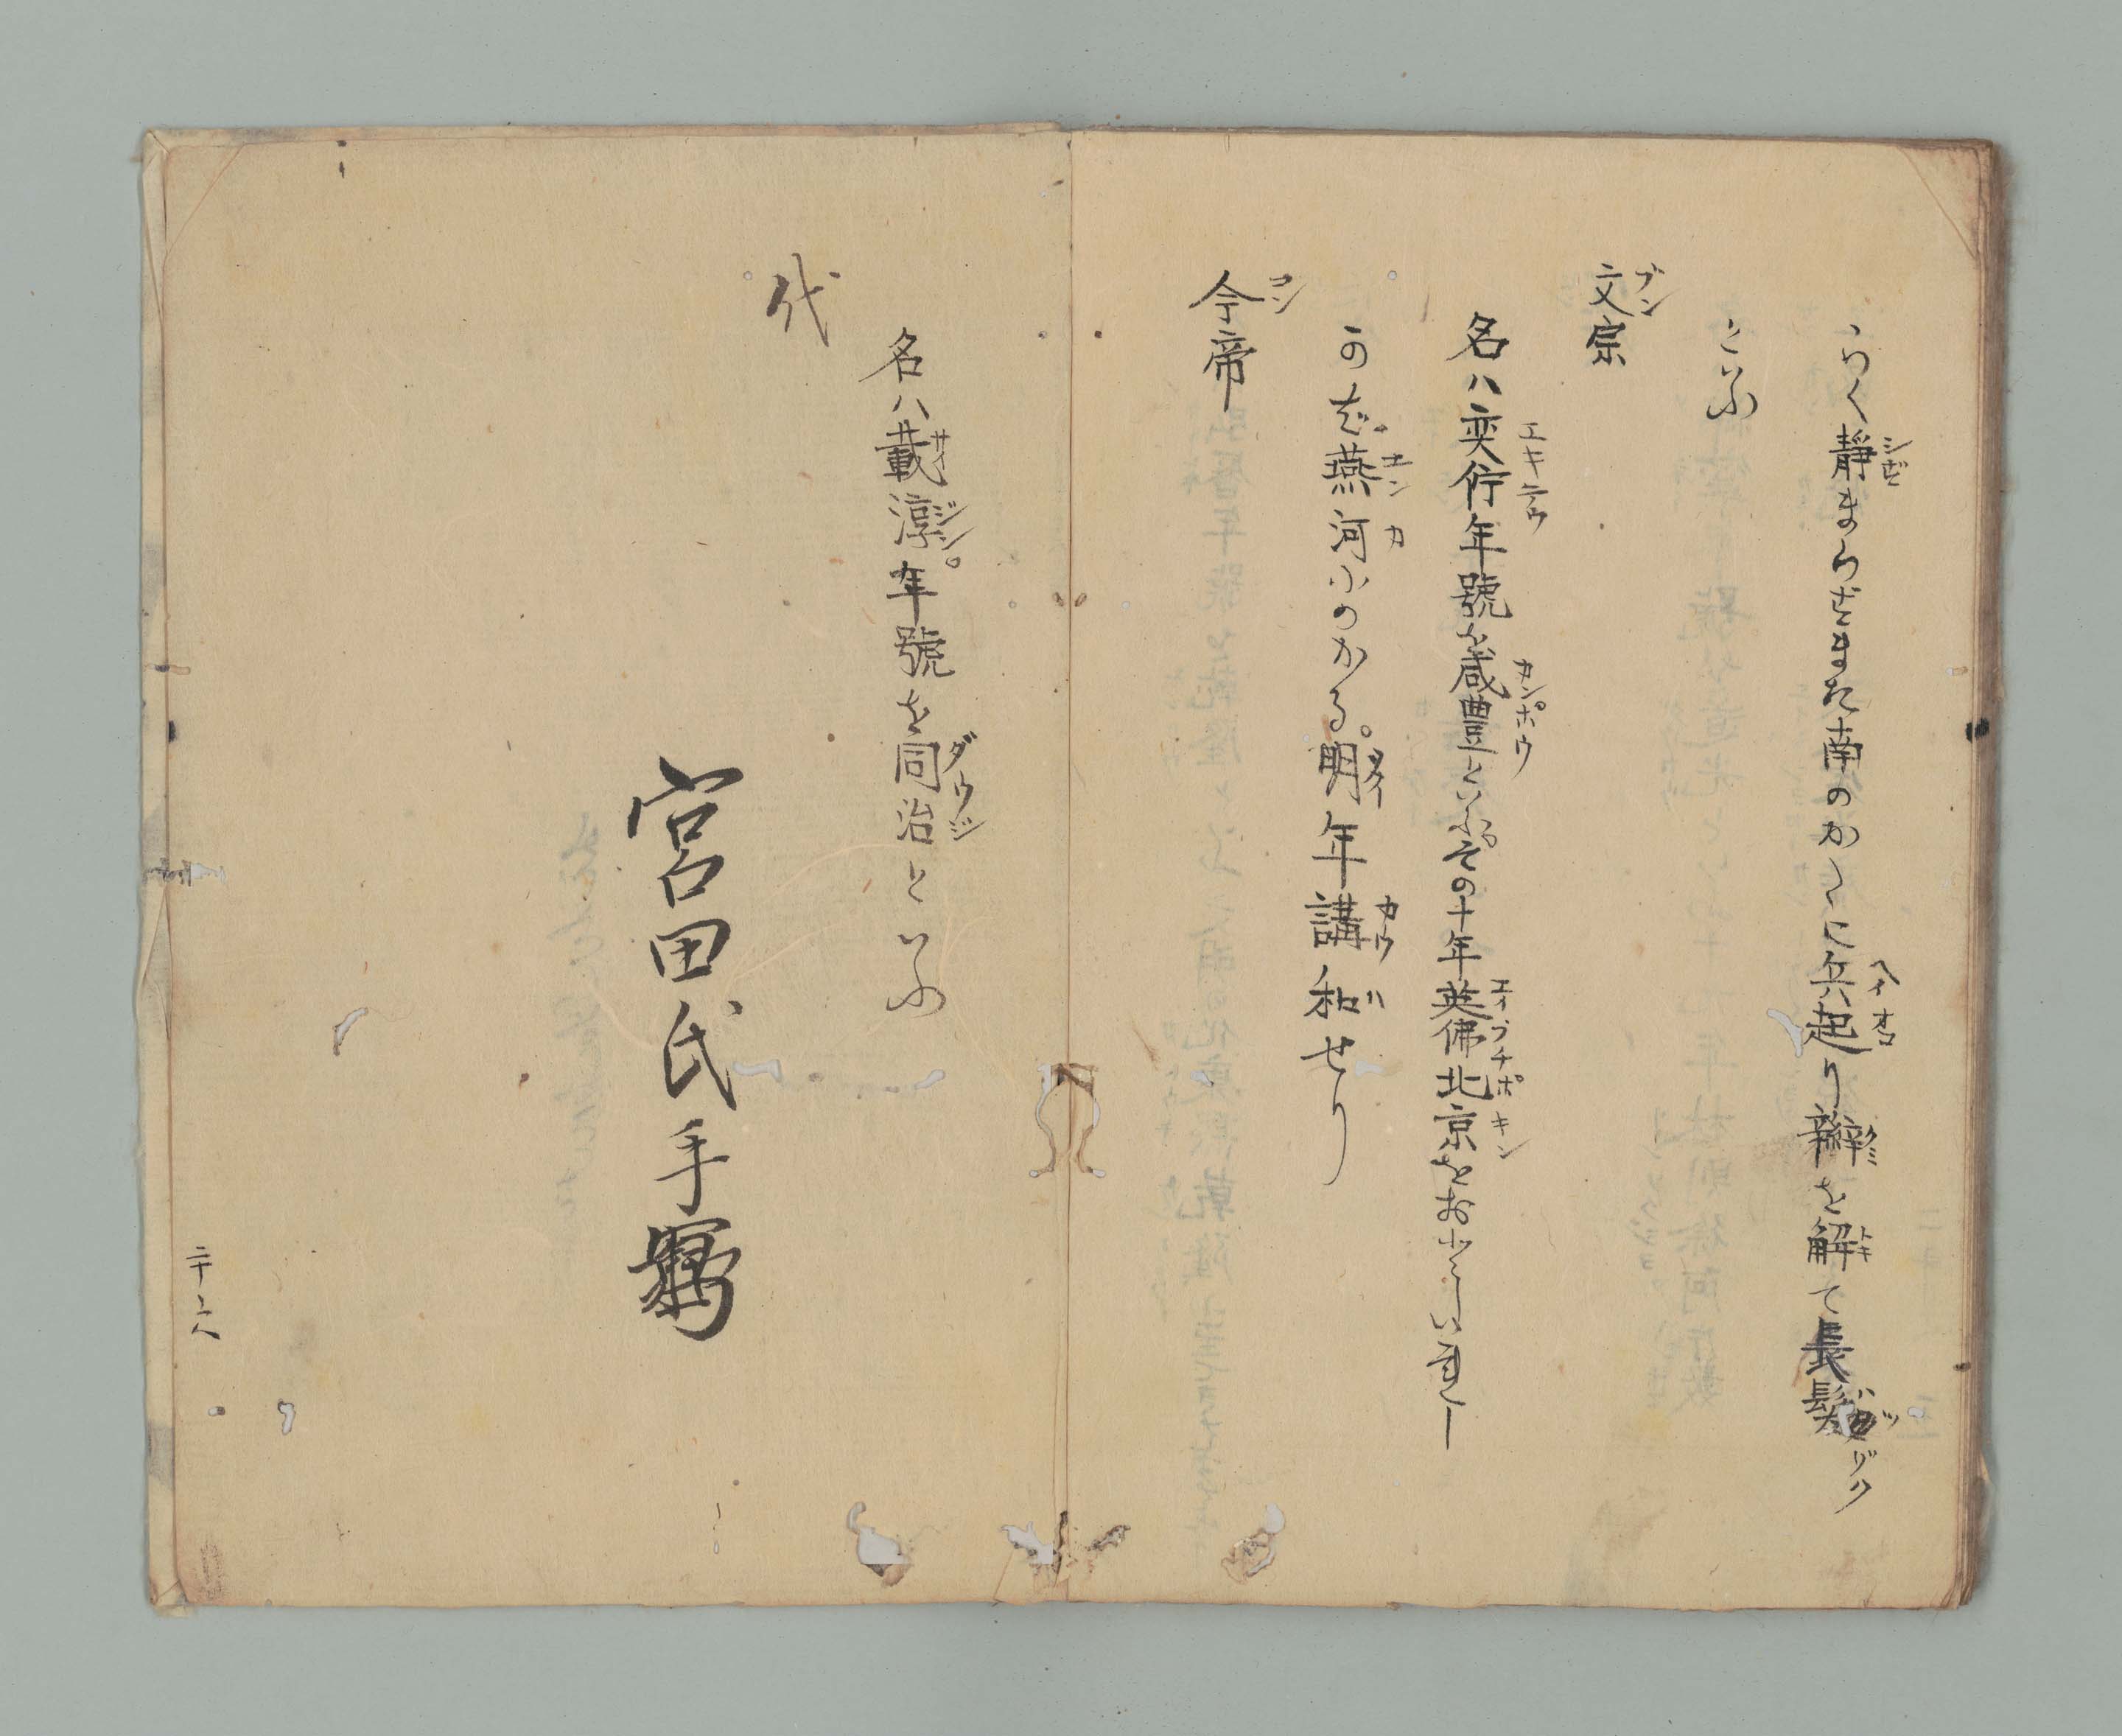 らく静まらずまた南のかたに兵起り辮を解て長髪
といふ
文宗
名ハ奕佇年號を咸豊といふその十年英佛北京を
この方燕河にのかる。明年講和せり
今帝
名ハ載淳。年號を同治といふ
代
宮田氏手
二十六